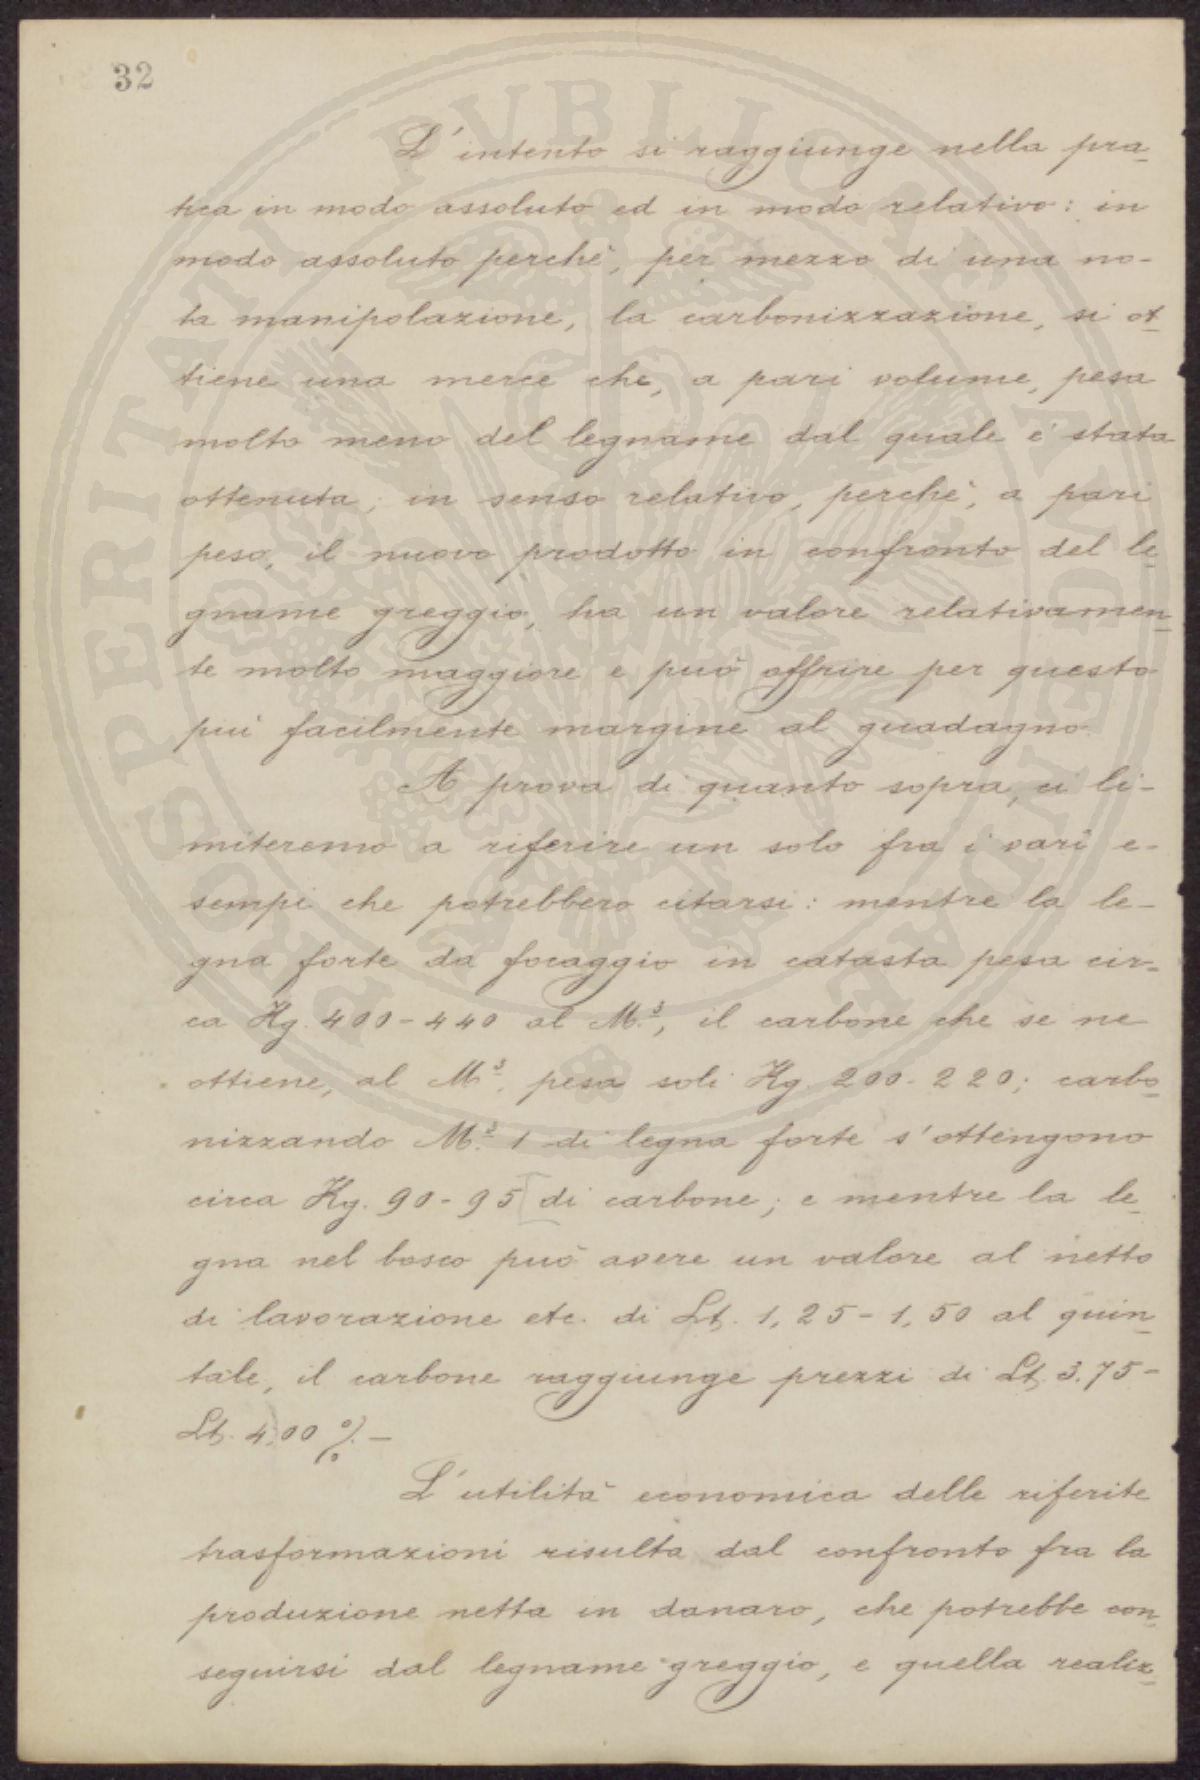 32
L'intento si raggiunge nella pra-
tica in modo assoluto ed in modo relativo: in
modo assoluto perchè, per mezzo di una no-
ta manipolazione, la carbonizzazione, si ot-
tiene una merce che, a pari volume, pesa
molto meno del legname dal quale è stata
ottenuta; in senso relativo, perchè, a pari
peso, il nuovo prodotto in confronto del le-
gname greggio, ha un valore relativamen-
te molto maggiore e può offrire per questo
più facilmente margine al guadagno.
A prova di quanto sopra, ci li-
miteremo a riferire un solo fra i varî e-
sempi che potrebbero citarsi: mentre la le-
gna forte da focaggio in catasta pesa cir-
ca Kg. 400-440 al M.³, il carbone che se ne
ottiene, al M³. pesa soli Kg. 200-220; carbo-
nizzando M.³ 1 di legna forte s'ottengono
circa Kg. 90-95 [di carbone; e mentre la le-
gna nel bosco può avere un valore al netto
di lavorazione etc. di Lt. 1,25-1,50 al quin-
tale, il carbone raggiunge prezzi di Lt. 3.75-
Lt. 4,00 % -
L'utilità economica delle riferite
trasformazioni risulta dal confronto fra la
produzione netta in danaro, che potrebbe con-
seguirsi dal legname greggio, e quella realiz-
PROSPERITATI PVBLICAE AVGENDAE